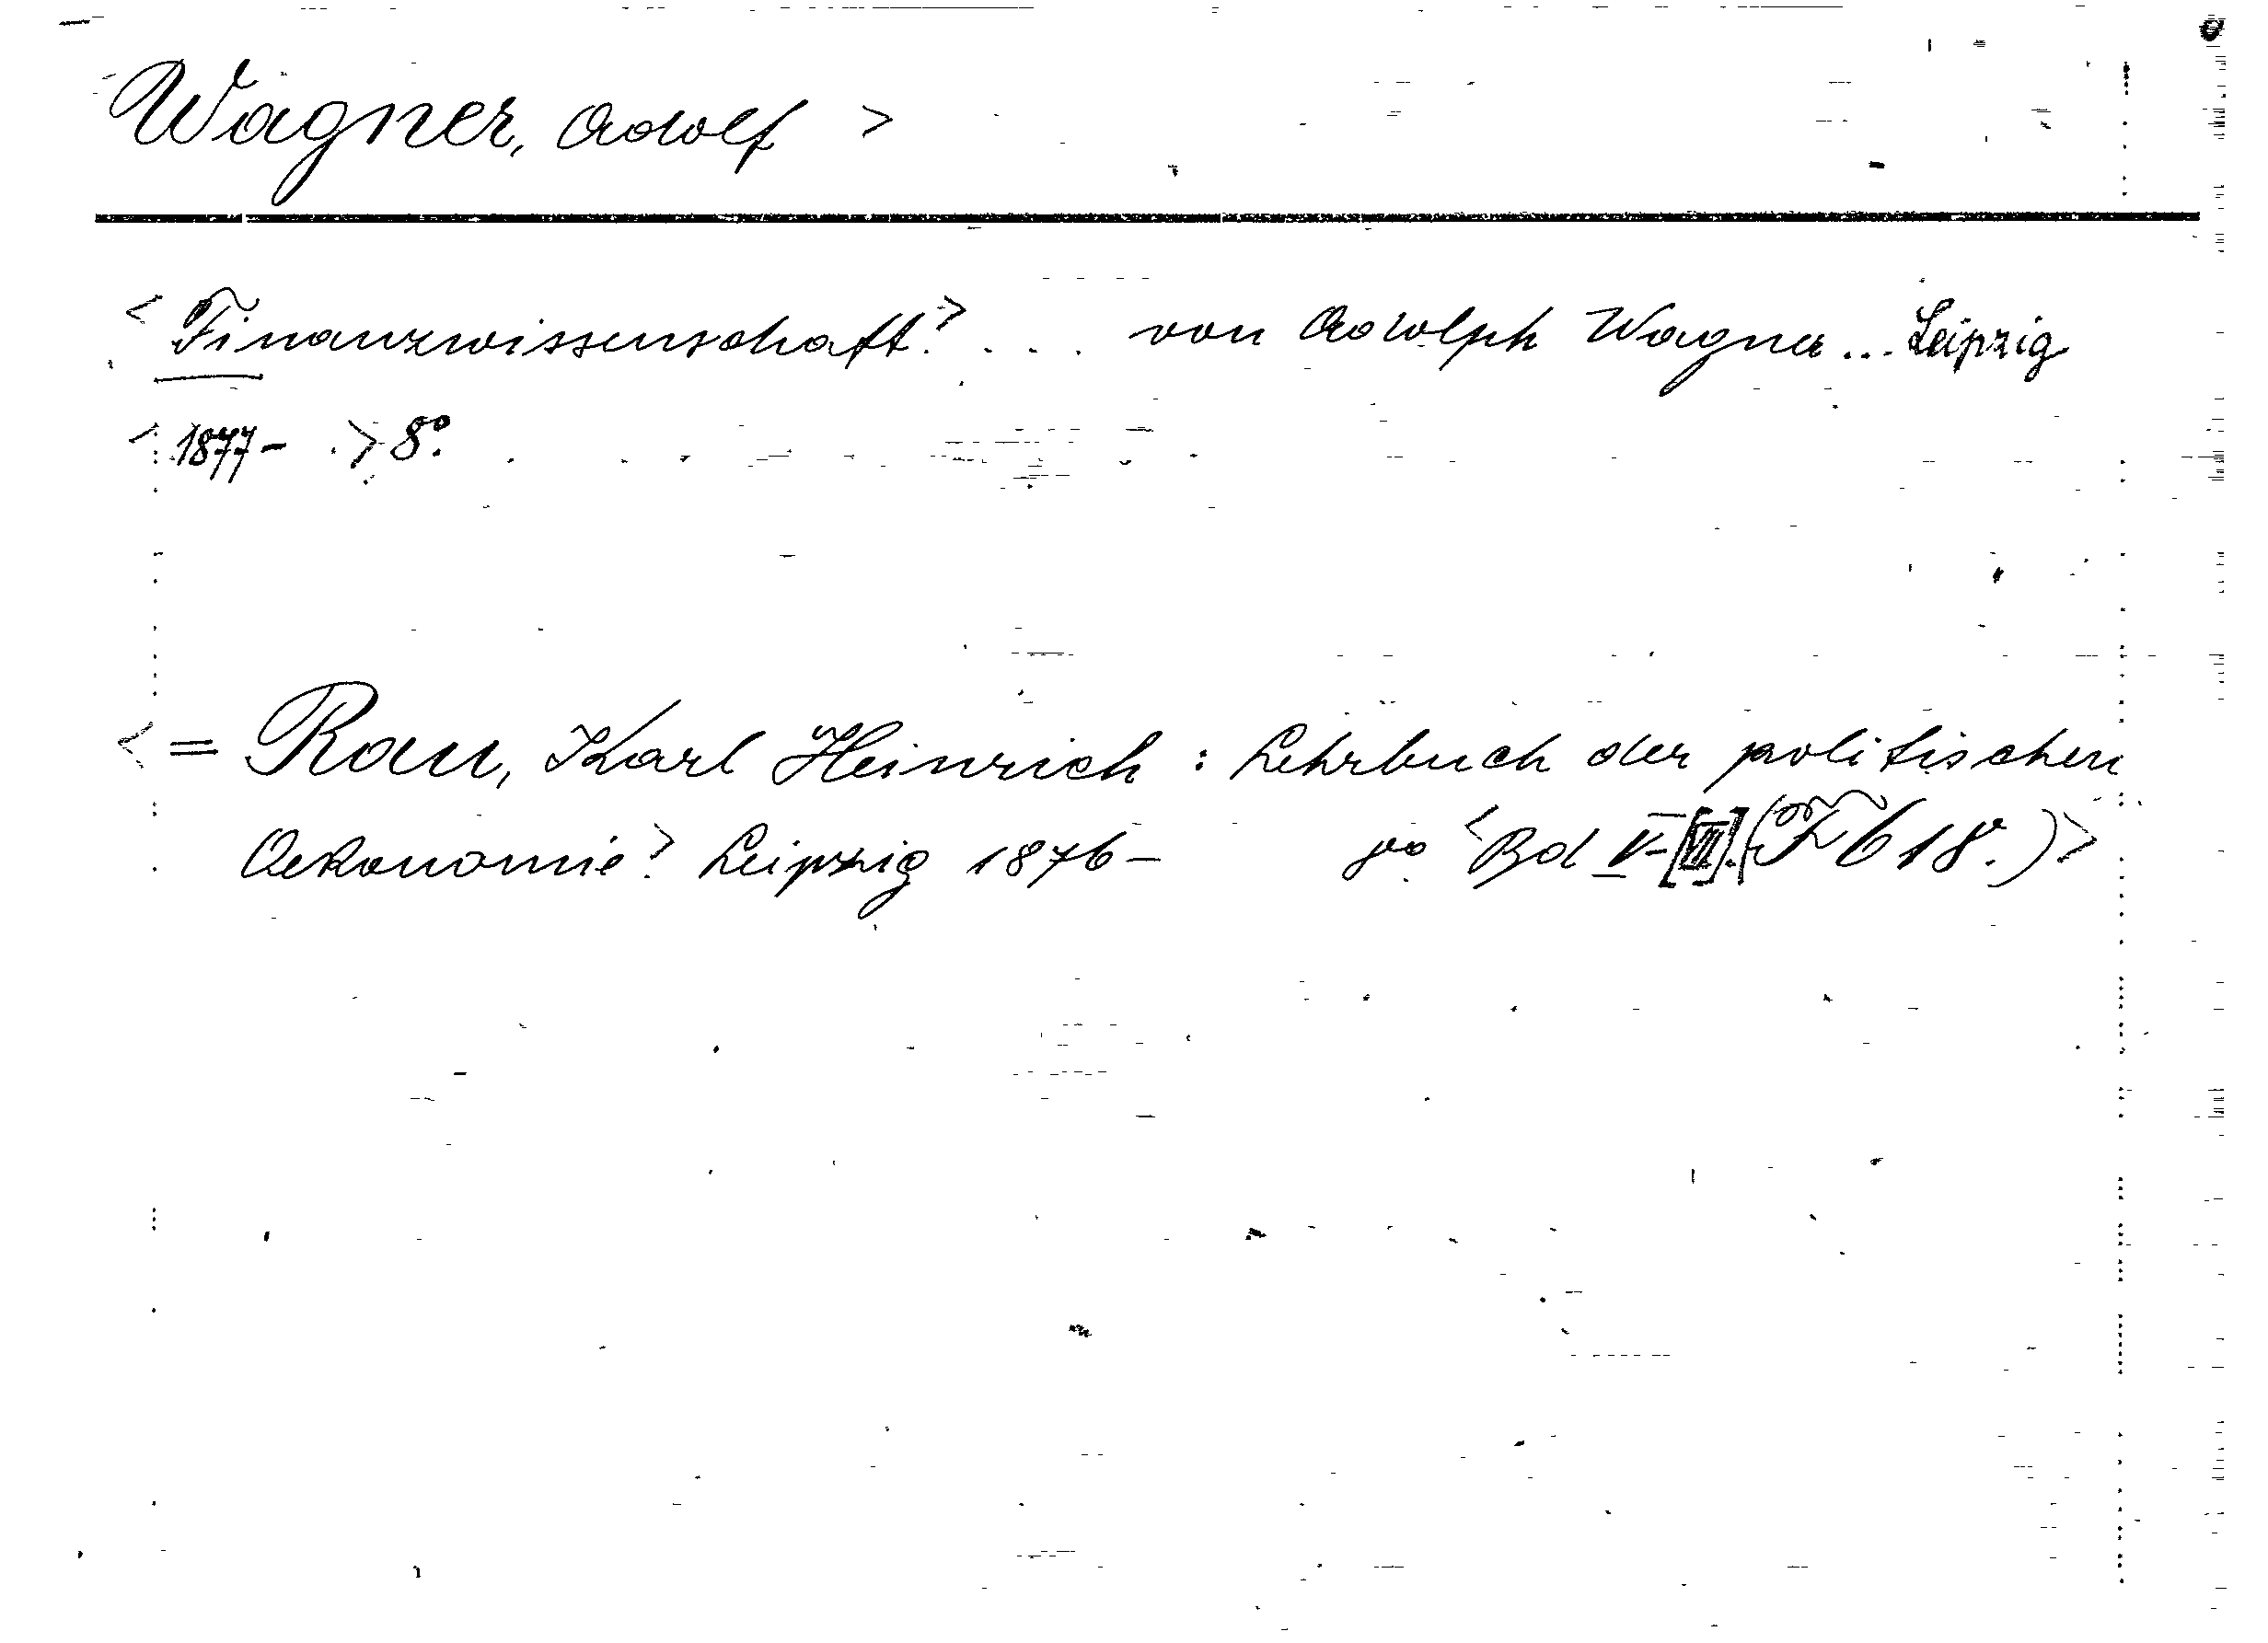 Wagner, Adolf >
< Finanzwissenschaft.> ... von Adolph Wagner ... Leipzig
< 1877- .> 8º.
< = Rau, Karl Heinrich : Lehrbuch der politischen
Oekonomie.> Leipzig 1876- 8º. <Bd V-[VII].(F 618.)>